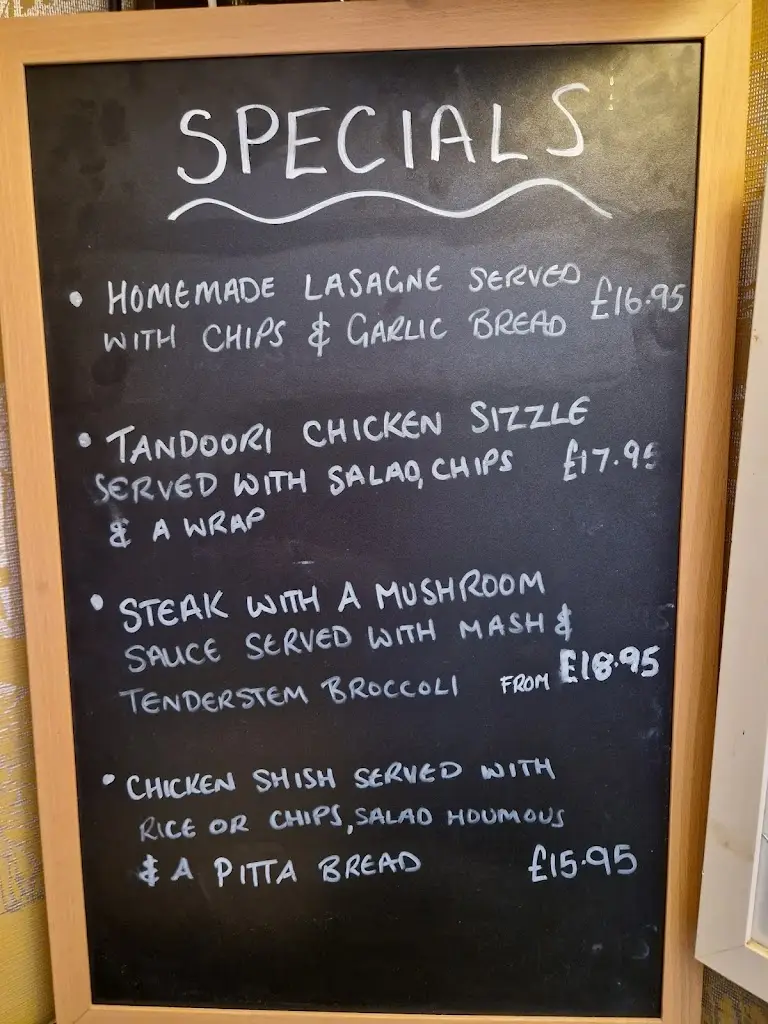 SPECIALS
• HOMEMADE LASAGNE SERVED
WITH CHIPS & GARLIC BREAD £16.95
• TANDOORI CHICKEN SIZZLE
SERVED WITH SALAD, CHIPS £17.95
& A WRAP
• STEAK WITH A MUSHROOM
SAUCE SERVED WITH MASH &
TENDERSTEM BROCCOLI FROM £18.95
• CHICKEN SHISH SERVED WITH
RICE OR CHIPS, SALAD HOUMOUS
& A PITTA BREAD £15.95